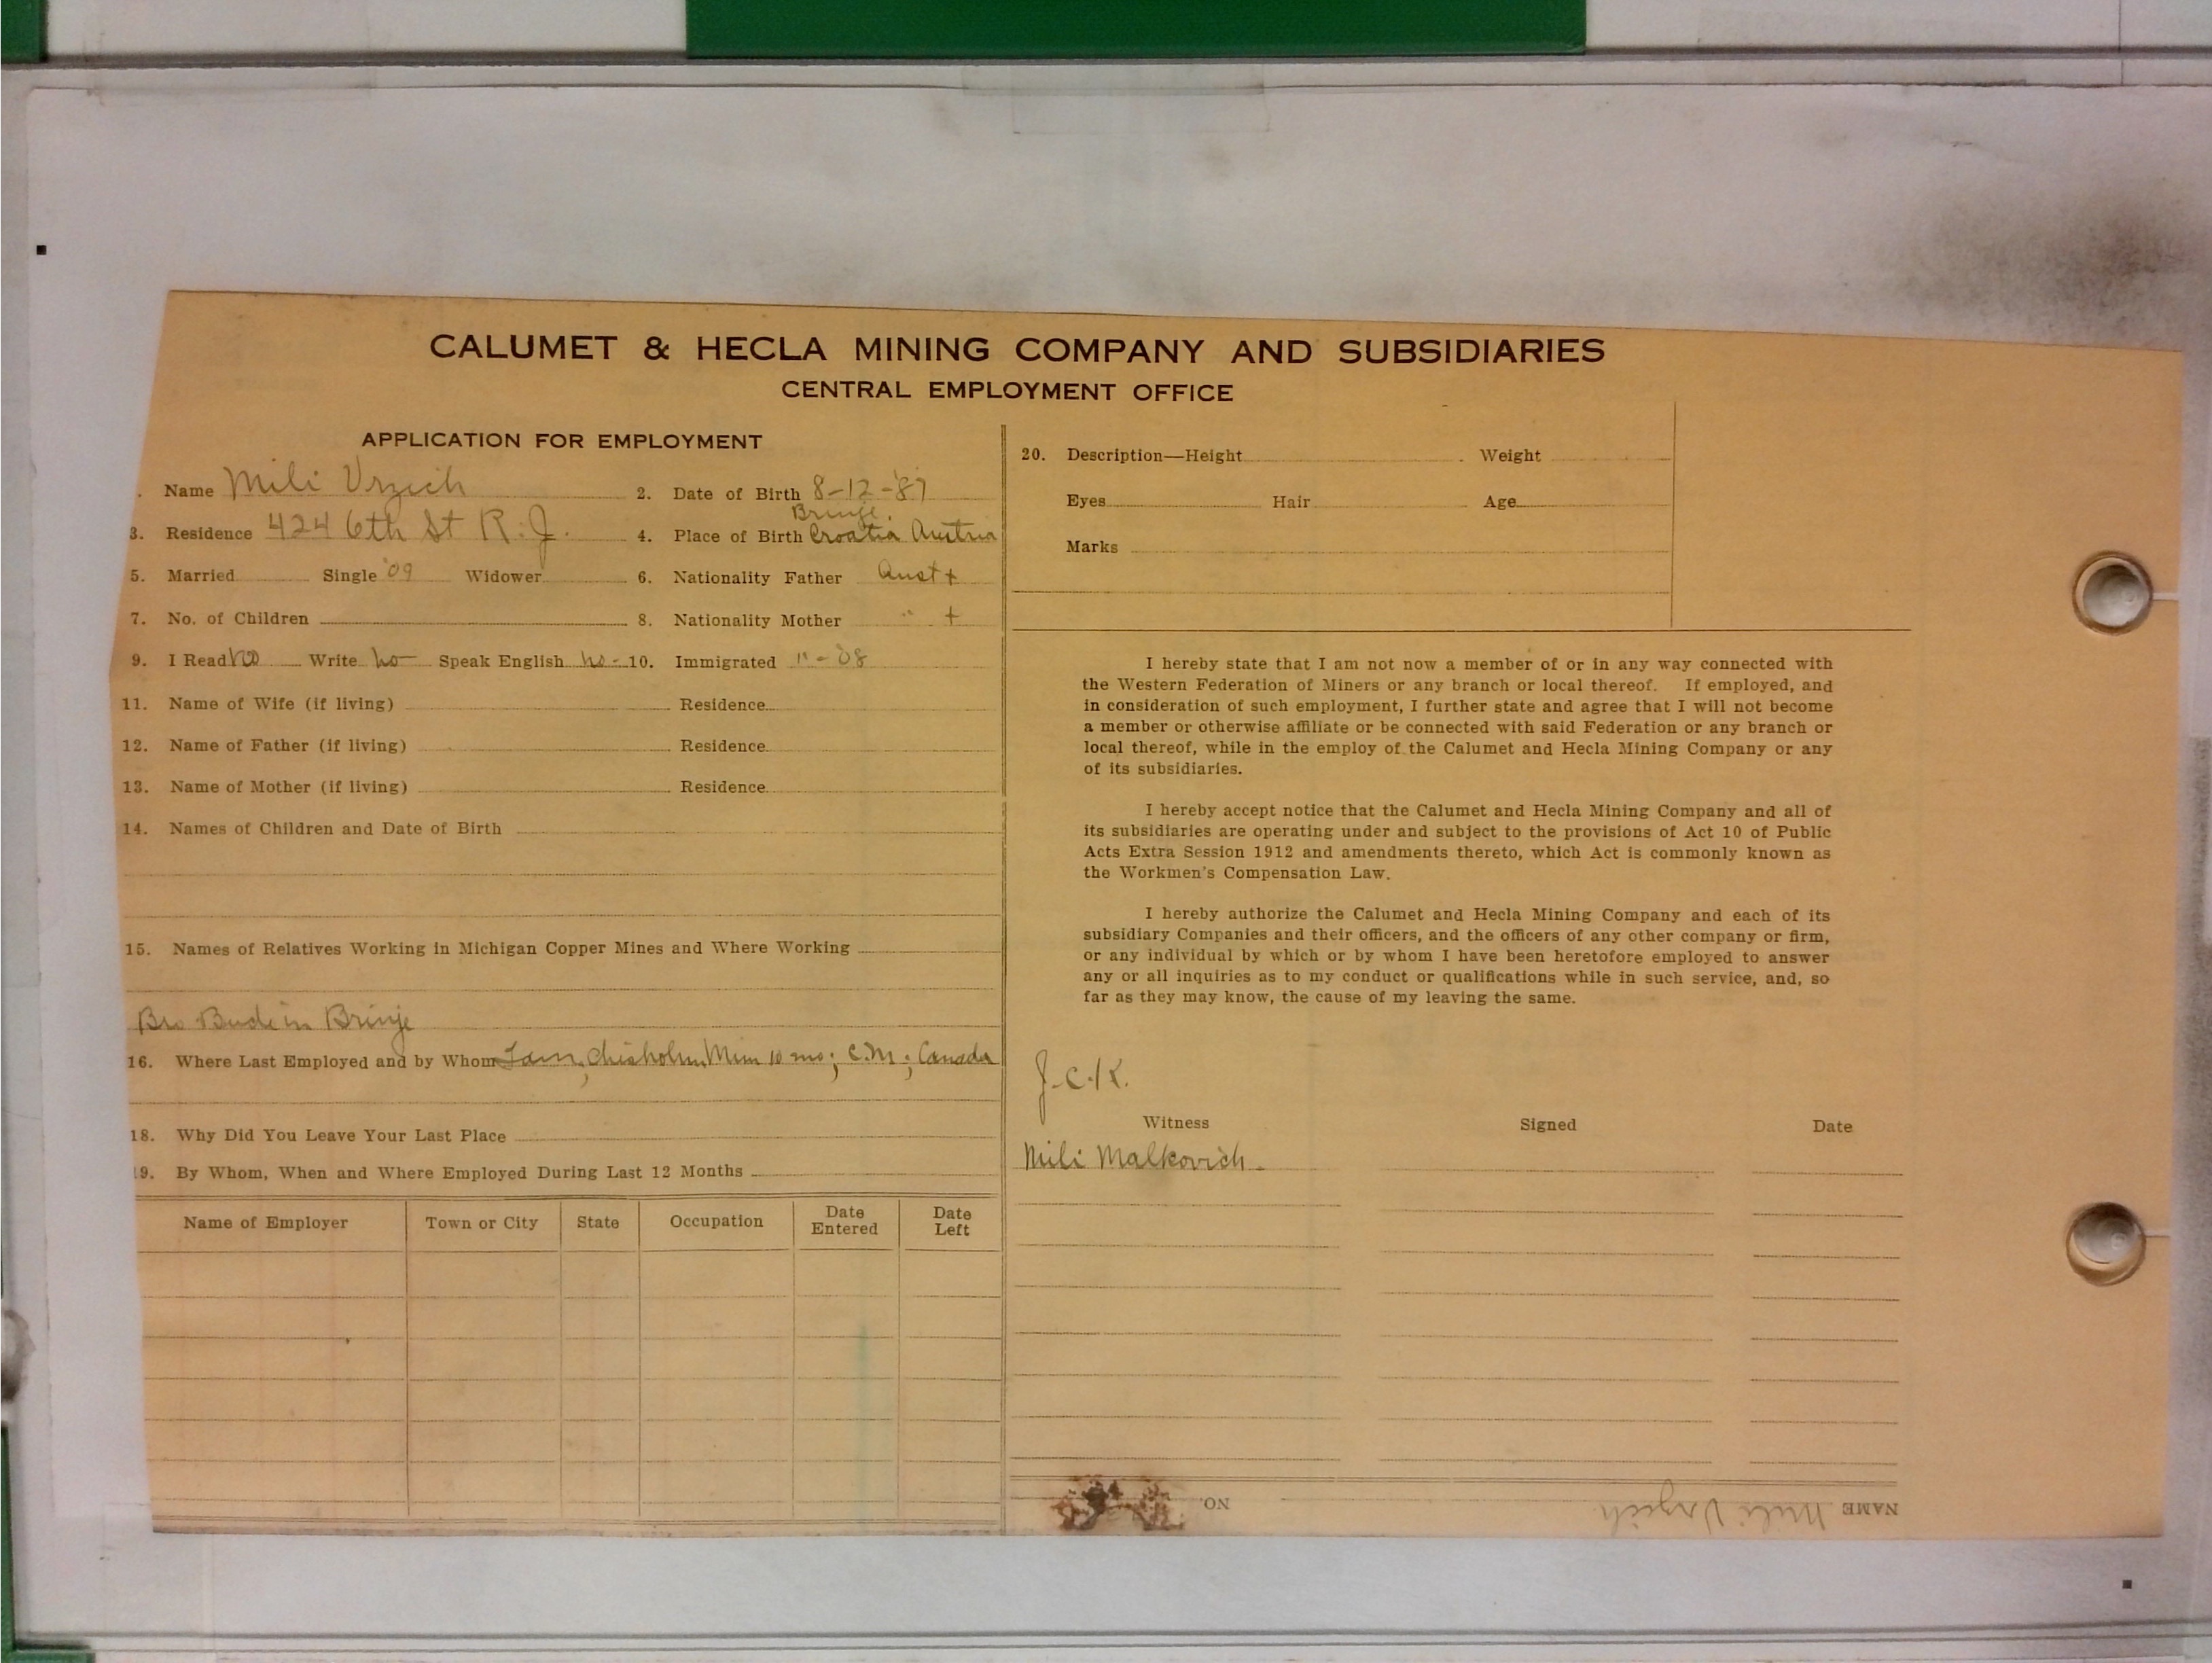 CALUMET & HECLA MINING COMPANY AND SUBSIDIARIES
CENTRAL EMPLOYMENT OFFICE
APPLICATION FOR EMPLOYMENT
. Name Mili Vrzich 2. Date of Birth 8-12-'87
Brinje.
3. Residence 424 6th St R. J. 4. Place of Birth Croatia Austria
5. Married Single '09 Widower 6. Nationality Father Aust +
7. No. of Children 8. Nationality Mother " +
9. I Read no Write no Speak English no - 10. Immigrated 11-'08
11. Name of Wife (if living) Residence
12. Name of Father (if living) Residence
13. Name of Mother (if living) Residence
14. Names of Children and Date of Birth
15. Names of Relatives Working in Michigan Copper Mines and Where Working
Bro Bude in Brinje
16. Where Last Employed and by Whom Chisholm, Minn 10 mo; C.M.; Canada
18. Why Did You Leave Your Last Place
19. By Whom, When and Where Employed During Last 12 Months
Name of Employer Town or City State Occupation Date Entered Date Left
20. Description—Height Weight
Eyes Hair Age
Marks
I hereby state that I am not now a member of or in any way connected with
the Western Federation of Miners or any branch or local thereof. If employed, and
in consideration of such employment, I further state and agree that I will not become
a member or otherwise affiliate or be connected with said Federation or any branch or
local thereof, while in the employ of the Calumet and Hecla Mining Company or any
of its subsidiaries.
I hereby accept notice that the Calumet and Hecla Mining Company and all of
its subsidiaries are operating under and subject to the provisions of Act 10 of Public
Acts Extra Session 1912 and amendments thereto, which Act is commonly known as
the Workmen's Compensation Law.
I hereby authorize the Calumet and Hecla Mining Company and each of its
subsidiary Companies and their officers, and the officers of any other company or firm,
or any individual by which or by whom I have been heretofore employed to answer
any or all inquiries as to my conduct or qualifications while in such service, and, so
far as they may know, the cause of my leaving the same.
J.C.K.
Witness Signed Date
Mili Malkovich.
NAME Mili Vrzich NO.